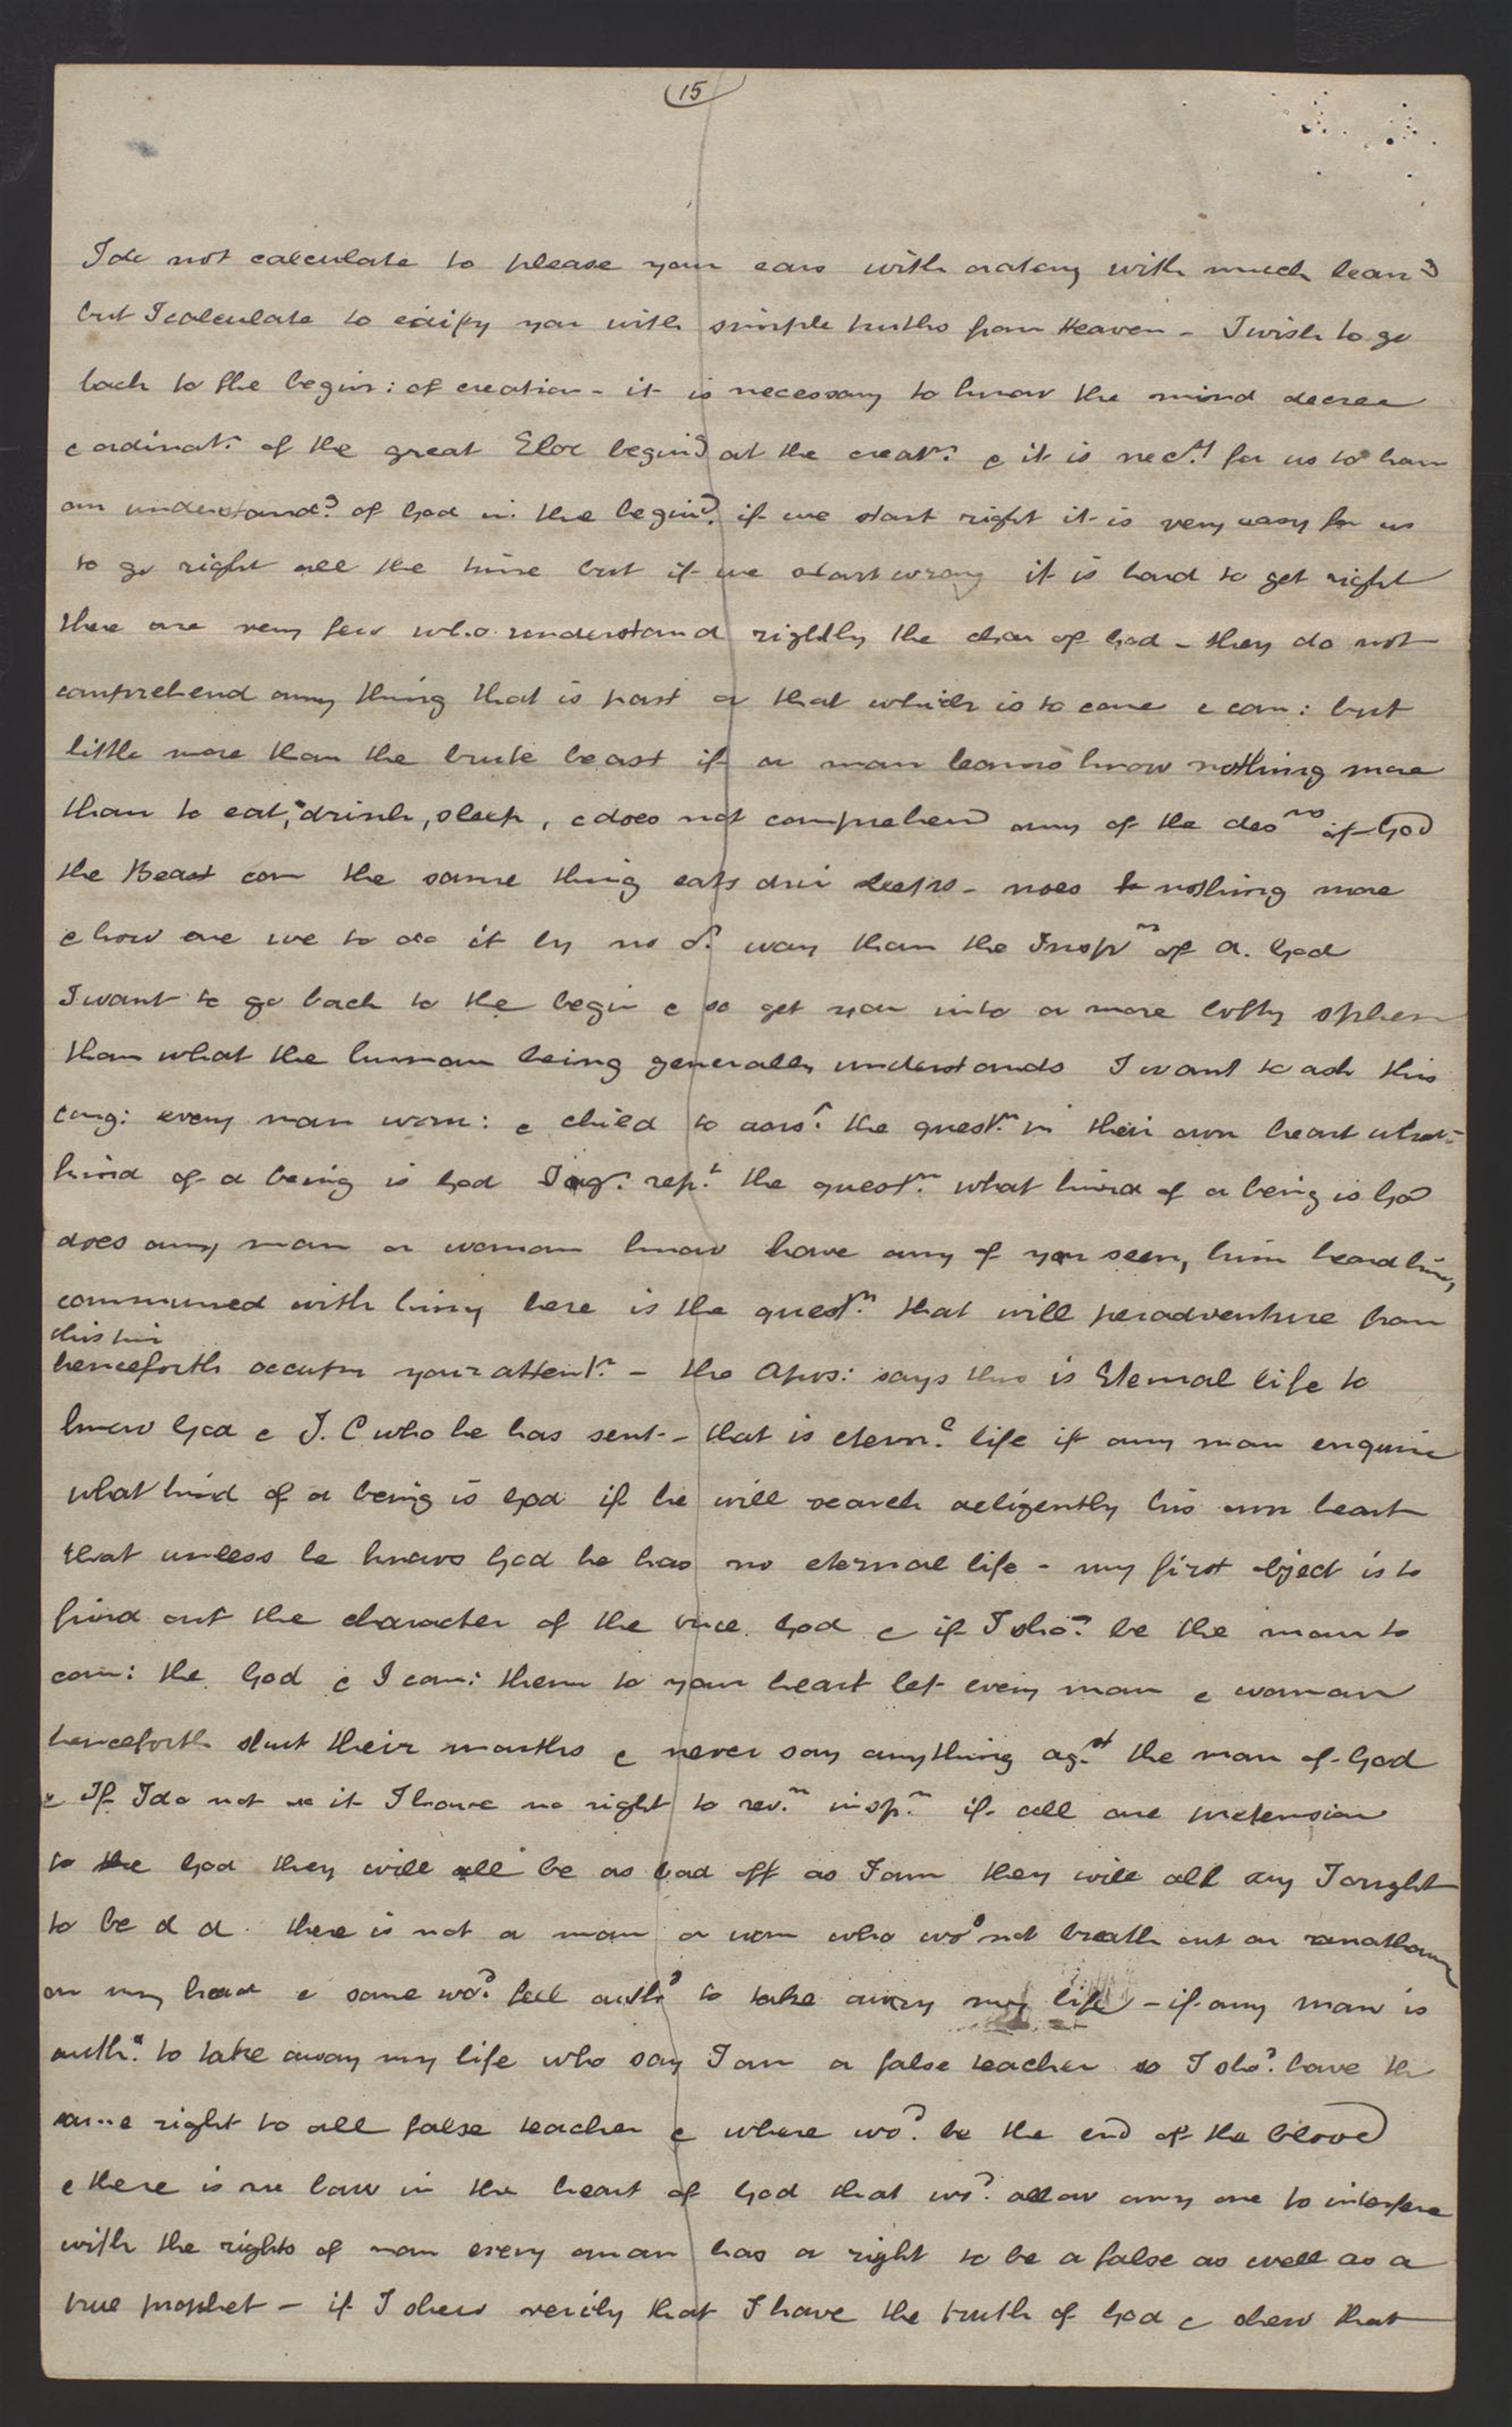 15
I do not calculate to please your ears with oratory with much learng
but I calculate to edify you with simple truths from Heaven - I wish to go
back to the begin: of creation - it is necessary to know the mind decree
& ordinatn. of the great Eloi beging at the creatn. & it is necy. for us to have
an understandg. of God in the beging. if we start right it is very easy for us
to go right all the time but if we start wrong it is hard to get right
there are very few who understand rightly the char of God - they do not
comprehend any thing that is past or that which is to come & com: but
little more than the brute beast if a man learns know nothing more
than to eat, drink, sleep, & does not comprehend any of the desns of God
the Beast com the same thing eats dri sleeps - noes nothing more
& how are we to do it by no or. way than the Inspn of A. God
I want to go back to the begin & so get you into a more lofty spher
than what the human being generally understands I want to ask this
cong: every man wom: & child to answr. the questn. in their own heart what
kind of a being is God I agn. rept. the questn. what kind of a being is God
does any man or woman know have any of you seen, him heard him,
communed with him, here is the questn. that will peradventure from
this tim
henceforth occupy your attentn. - the Apos: says this is Eternal life to
know God & J. C who he has sent - that is eternl. life if any man enquire
what kind of a being is God if he will search diligently his own heart
that unless he knows God he has no eternal life - my first object is to
find out the character of the true God & if I shod. be the man to
com: the God & I com: them to your heart let every man & woman
henceforth shut their mouths & never say anything agst. the man of God
& If I do not do it I have no right to revn. inspn. if all are pretension
to the God they will all be as bad off as I am they will all say I ought
to be d d. there is not a man or wom who wod not breath out an anathama
on my head & some wod. feel authd to take away my life - if any man is
authd. to take away my life who say I am a false teacher so I shod. have the
same right to all false teacher & where wod. be the end of the blood
& there is no law in the heart of God that wod. allow any one to interfere
with the rights of man every man has a right to be a false as well as a
true prophet - if I shew verily that I have the truth of God & shew that